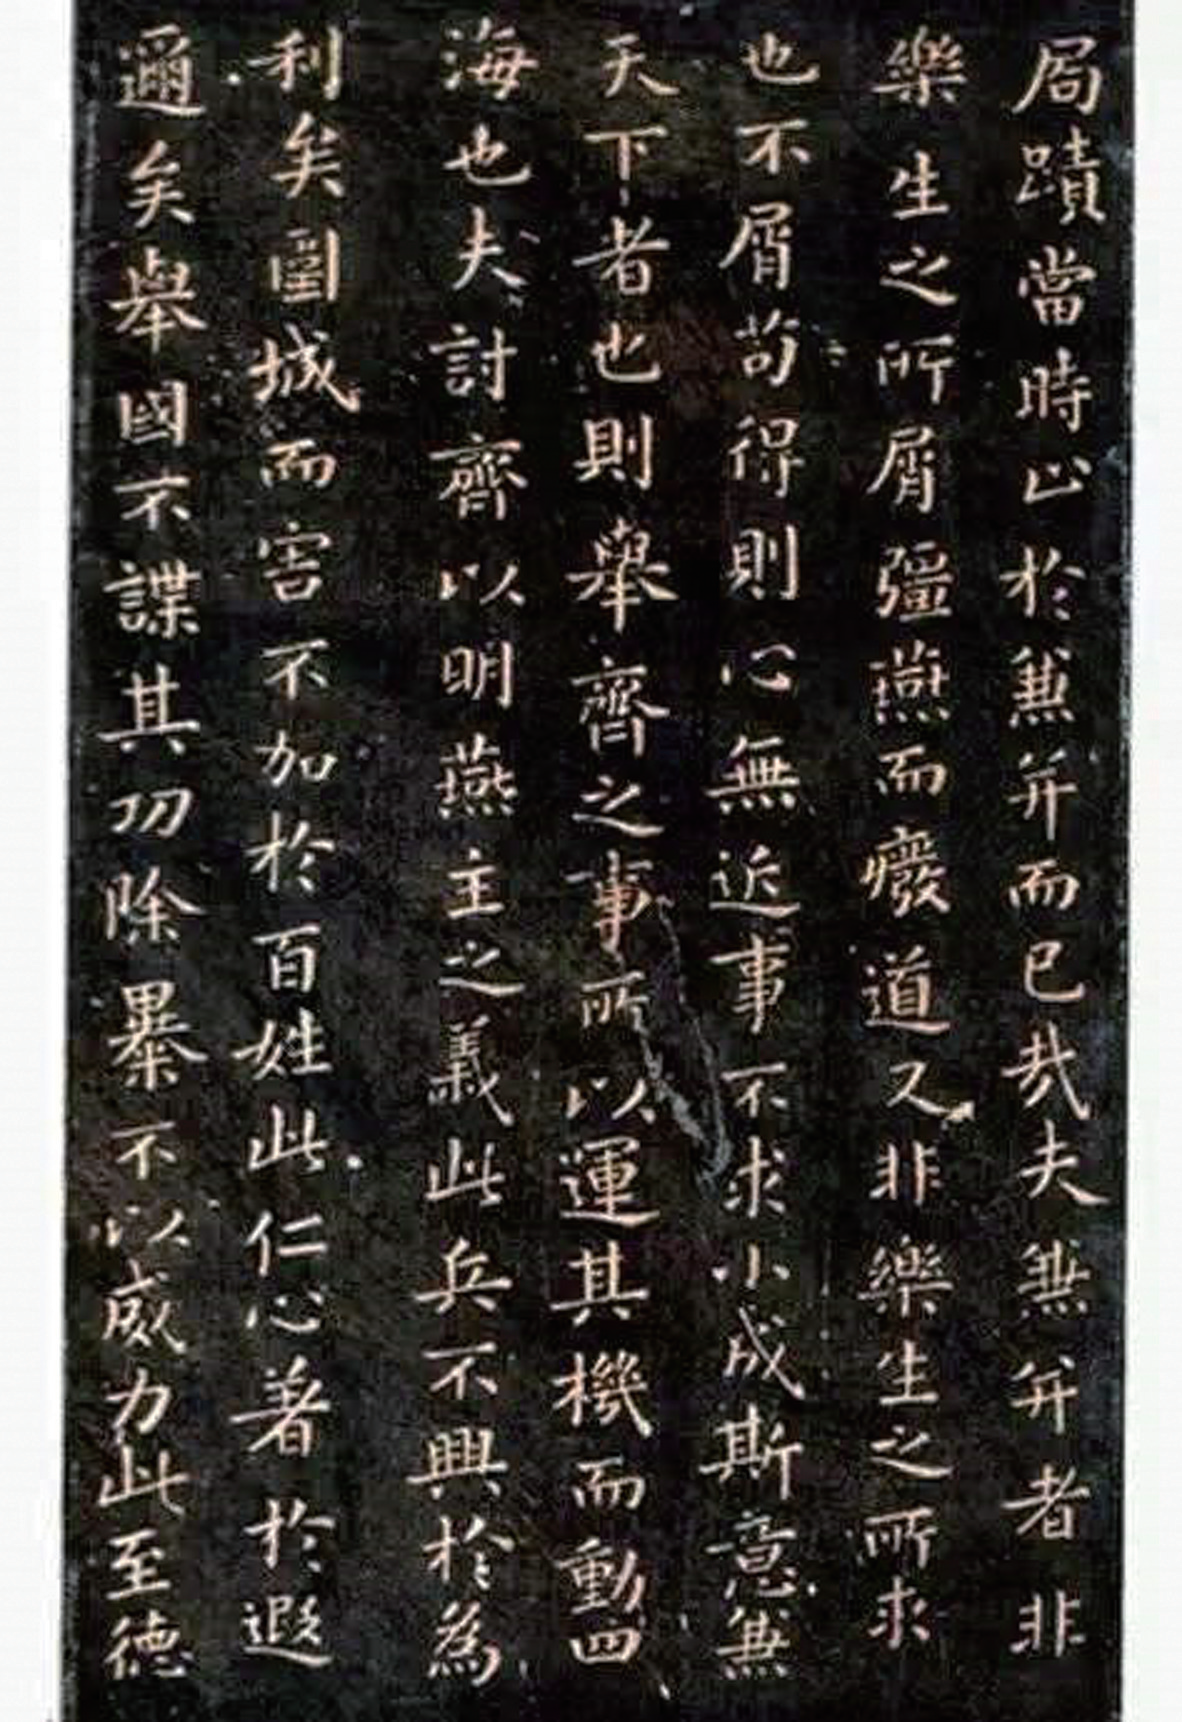 局蹟當時止於兼并而已哉夫兼并者非
樂生之所屑彊燕而癈道又非樂生之所求
也不屑苟得則心無近事不求小成斯意兼
天下者也則舉齊之事所以運其機而動四
海也夫討齊以明燕主之義此兵不興於為
利矣圍城而害不加於百姓此仁心著於遐
邇矣舉國不謀其功除暴不以威力此至德